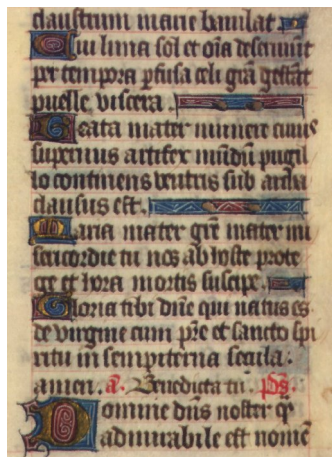 claustrum marie baiulat
Cui luna sol et oīa deseruiūt
per tempora pfusa celi grā gestāt
puelle viscera.
Beata mater munere cuius
supernus artifex mūdū pugil
lo continens ventris sub archa
clausus est.
Maria mater grē mater mi
sericordie tu nos ab hoste prote
ge et hora mortis suscipe.
Gloria tibi dn̄e qui natus es
de virgine cum pr̄e et sancto spi
ritu in sempiterna secula.
amen. a. Benedicta tu. ps.
Domine dn̄s noster q̄
admirabile est nomē